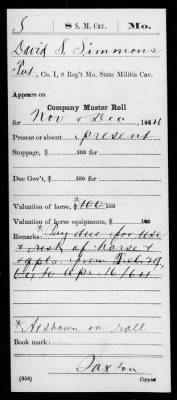 S | 8 S. M. Cav. | Mo.
David S. Simmons
Pvt, Co. I, 8 Reg't Mo. State Militia Cav.
Appears on
Company Muster Roll
for Nov & Dec, 1864
Present or absent present
Stoppage, $ 100 for
Due Gov't, $ 100 for
Valuation of horse, $ *100 100
Valuation of horse equipments, $ 100
Remarks: *Pay due for use
& risk of horse &
eqpts. from Feb. 29,
to Apr. 10/64
*As shown on roll
Book mark:
Saxton
(358) Copyist